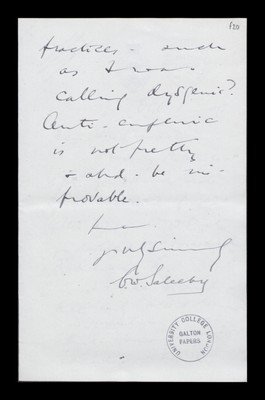 120
practices - such
as I was
calling dysgenic?
Anti-eugenic
is not pretty
& abd. be im-
provable.
C.W. Saleeby
UNIVERSITY COLLEGE LONDON
GALTON
PAPERS